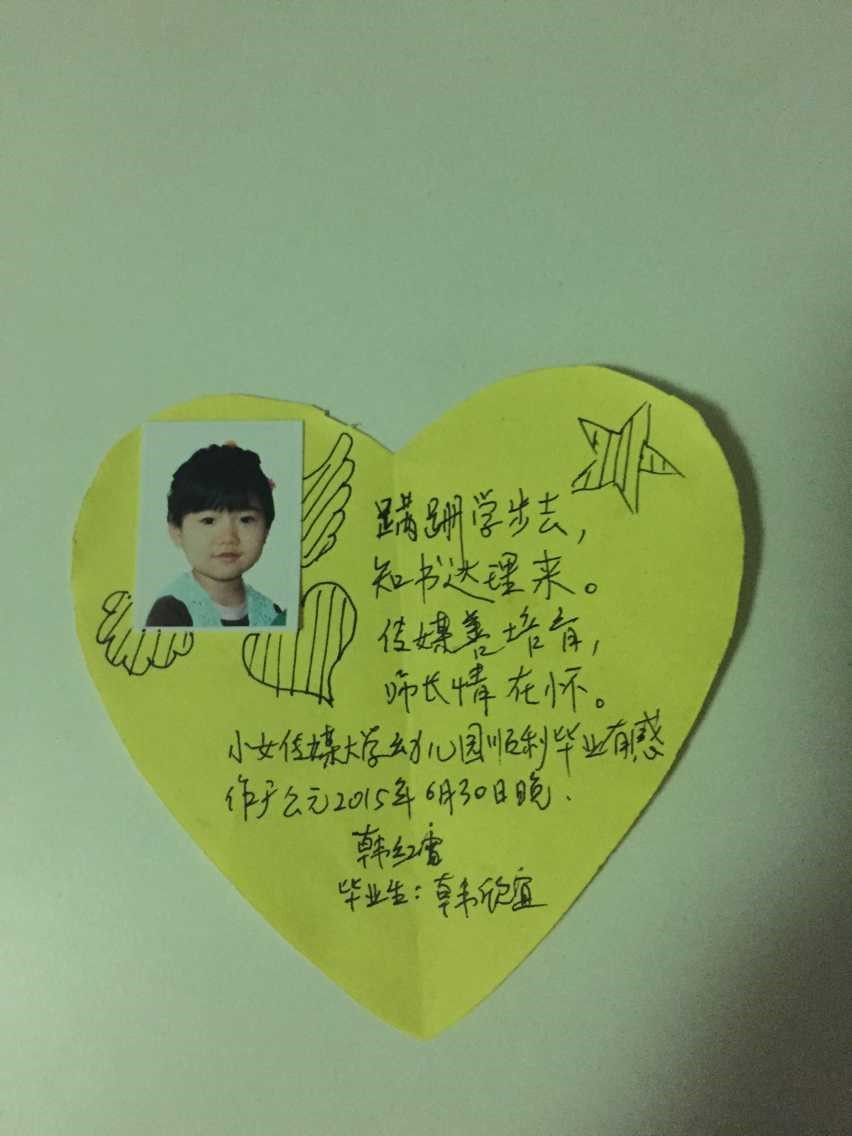 蹒跚学步去，
知书达理来。
传媒善培育，
师长情在怀。
小女传媒大学幼儿园顺利毕业有感
作于公元2015年6月30日晚.
韩红雷
毕业生：韩欣宜